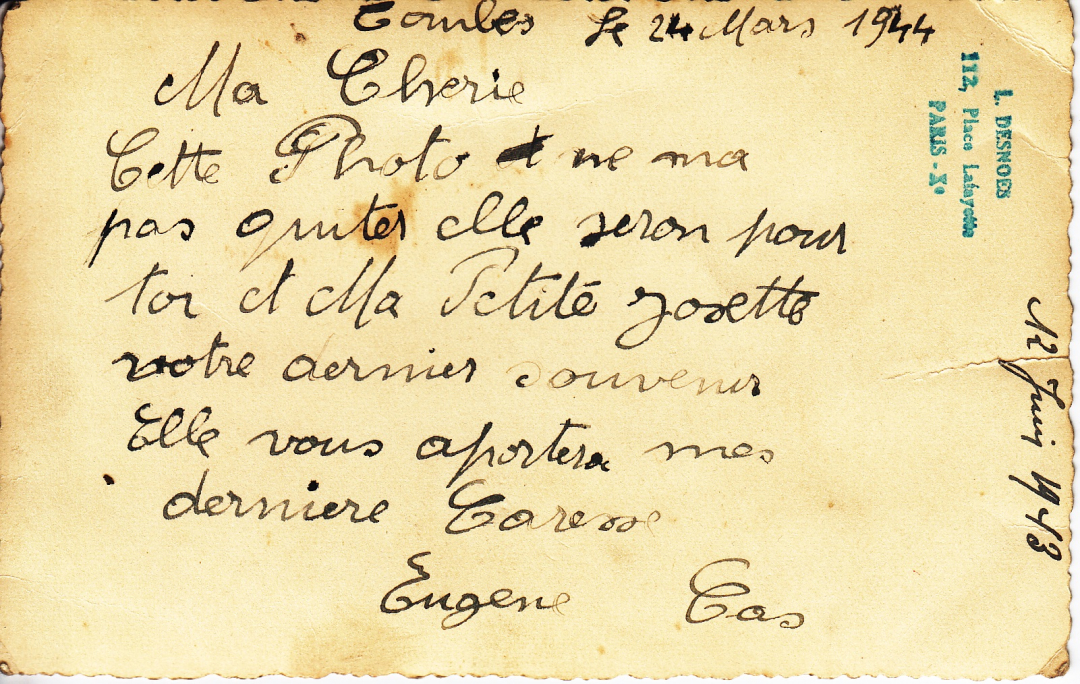 le 24 Mars 1944
Ma Cherie
Cette Photo ne ma
pas quiter elle seron pour
toi et Ma Petite Josette
votre dernier souvenir
Elle vous aportera mes
derniere Caresse
Eugene Cas
L. DESNOES
112, Place Lafayette
PARIS - Xº
12 Juin 1943